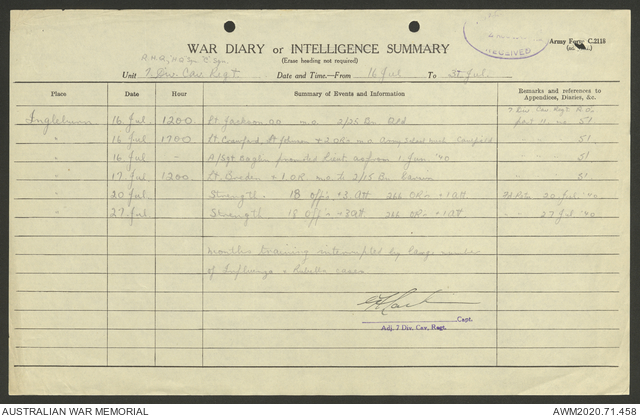 RECEIVED
Army Form C.2118
WAR DIARY or INTELLIGENCE SUMMARY
(Erase heading not required)
R.H.Q., "HQ" Sqn "C" Sqn.
Unit 7 Div. Cav. Regt Date and Time.—From 16 Jul To 31 Jul.
Place Date Hour Summary of Events and Information Remarks and references to Appendices, Diaries, &c.
7 Div Cav Regt R.O.
Ingleburn 16 Jul 1200 Lt Jackson 2/25 Bn Qld part II no 51
" 16 Jul 1700 Lt Crawford, + 2 OR 51
" 16 Jul - A/Sgt promoted Lieut from 1 Jun '40 51
" 17 Jul 1200 Lt + 1 OR to 2/15 Bn 51
" 20 Jul Strength 18 Off's + 3 att 266 ORs + 1 att. 20 Jul '40
" 27 Jul Strength 18 Off's + 3 att 266 ORs + 1 att. " 27 Jul '40
Months training interrupted by large number
of Influenza + Rubella cases
Capt.
Adj. 7 Div. Cav. Regt.
AUSTRALIAN WAR MEMORIAL AWM2020.71.458